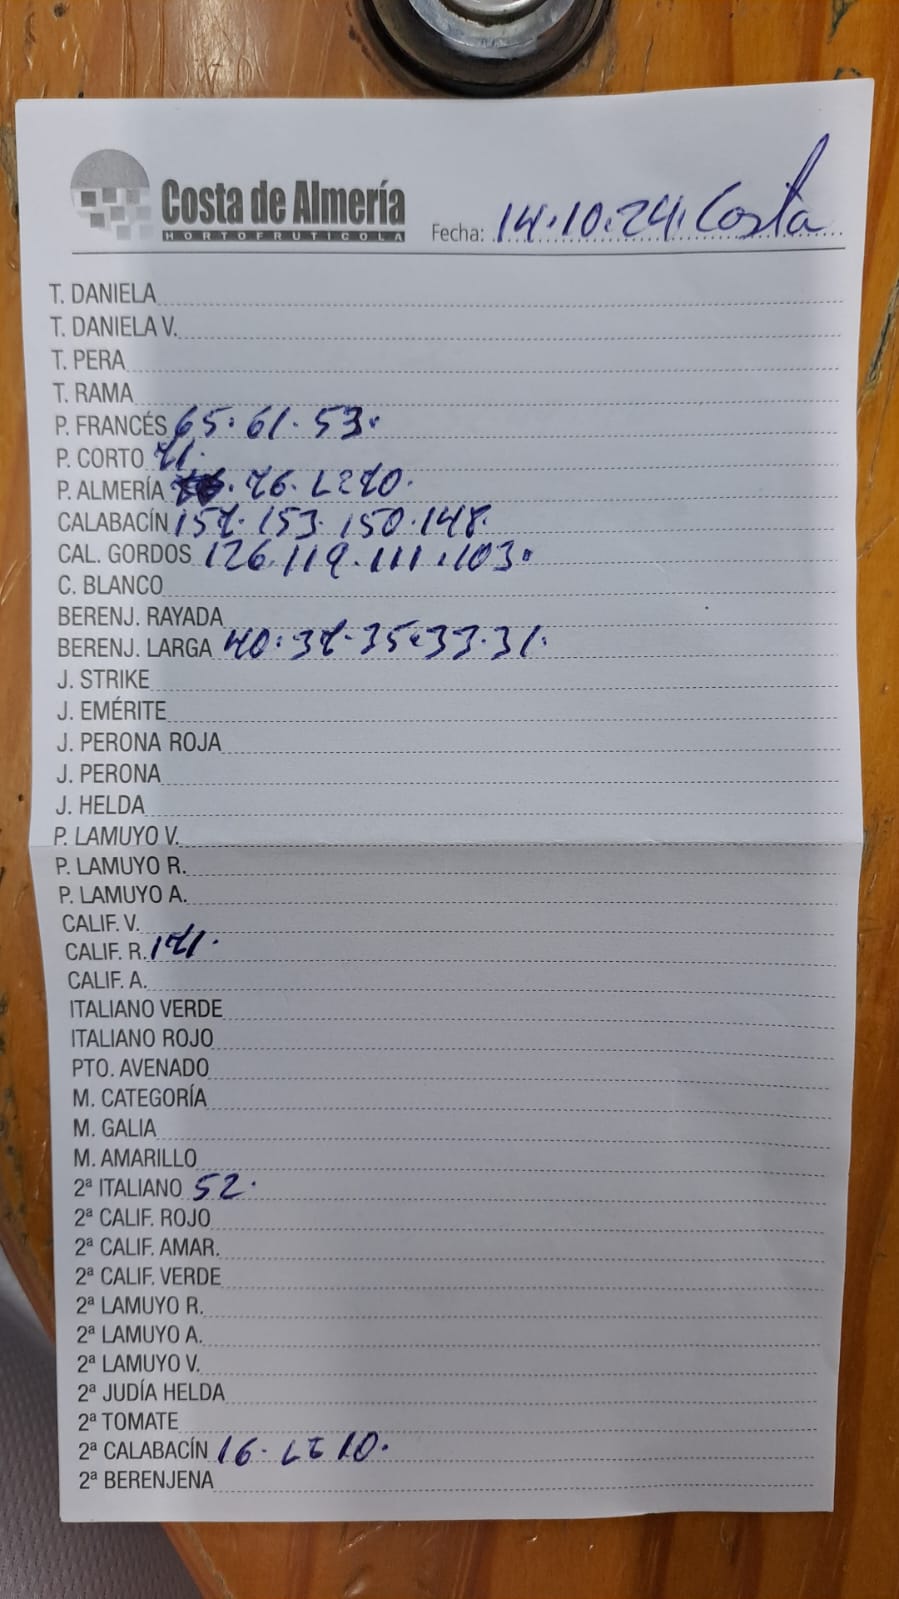 Costa de Almería
HORTOFRUTICOLA
Fecha: 14.10.24. Costa
T. DANIELA
T. DANIELA V.
T. PERA
T. RAMA
P. FRANCÉS 65. 61. 53.
P. CORTO 71.
P. ALMERÍA 76.
CALABACÍN 157. 153. 150. 148.
CAL. GORDOS 126. 119. 111. 103.
C. BLANCO
BERENJ. RAYADA
BERENJ. LARGA 40. 37. 35. 33. 31.
J. STRIKE
J. EMÉRITE
J. PERONA ROJA
J. PERONA
J. HELDA
P. LAMUYO V.
P. LAMUYO R.
P. LAMUYO A.
CALIF. V.
CALIF. R. 171.
CALIF. A.
ITALIANO VERDE
ITALIANO ROJO
PTO. AVENADO
M. CATEGORÍA
M. GALIA
M. AMARILLO
2ª ITALIANO 52.
2ª CALIF. ROJO
2ª CALIF. AMAR.
2ª CALIF. VERDE
2ª LAMUYO R.
2ª LAMUYO A.
2ª LAMUYO V.
2ª JUDÍA HELDA
2ª TOMATE
2ª CALABACÍN 16. 10.
2ª BERENJENA